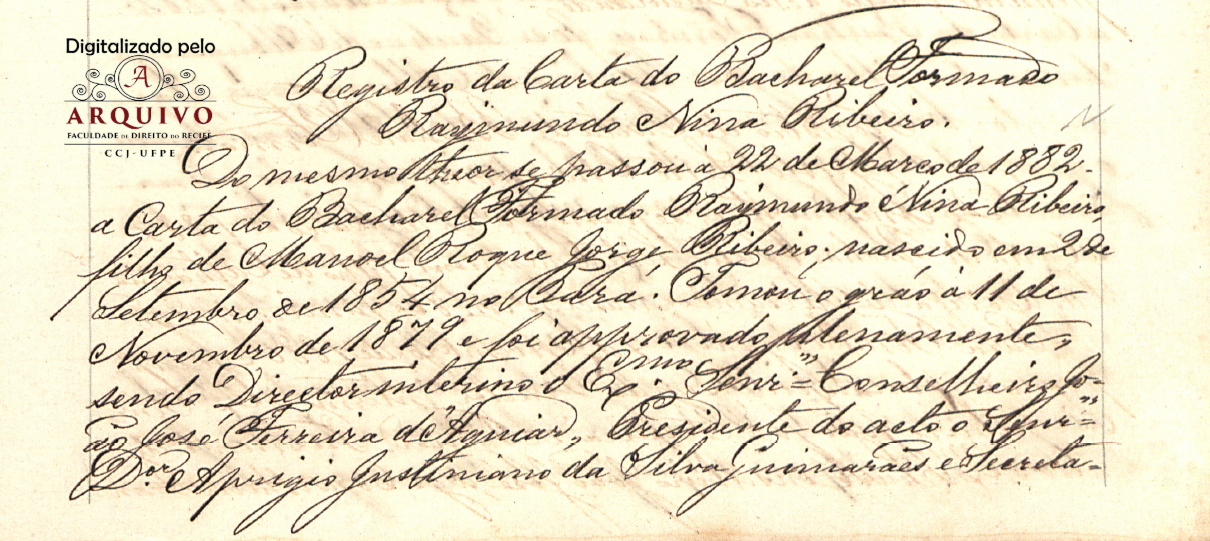 Digitalizado pelo
A
ARQUIVO
FACULDADE DE DIREITO DO RECIFE
CCJ-UFPE
Registro da Carta do Bacharel Formado
Raymundo Nina Ribeiro.
Do mesmo theor se passou a 22 de Março de 1882.
a Carta do Bacharel Formado Raymundo Nina Ribeiro
filho de Manoel Roque Jorge Ribeiro, nascido em 2 de
Setembro de 1854 no Pará. Tomou o gráo à 11 de
Novembro de 1879 e foi approvado plenamente,
sendo Director interino o Exmo. Senr.= Conselheiro Jo-
ão José Ferreira d'Aguiar, Presidente do acto o Senr.=
Dor. Aprigio Justiniano da Silva Guimarães e Secreta-